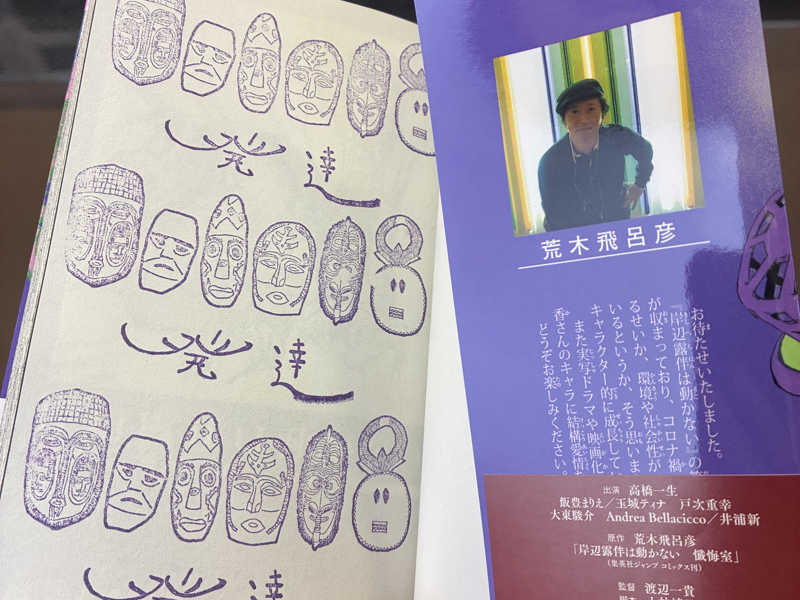 発達
発達
発達
荒木飛呂彦
お待たせいたしました。
『岸辺露伴は動かない』の
が収まっており、コロナ禍
るせいか、環境や社会性が
いるというか、そう思いま
キャラクター的に成長して
また実写ドラマや映画化
香さんのキャラに結構愛情
どうぞお楽しみください。
出演 高橋一生
飯豊まりえ/玉城ティナ 戸次重幸
大東駿介 Andrea Bellacicco/井浦新
原作 荒木飛呂彦
「岸辺露伴は動かない 懺悔室」
(集英社ジャンプ コミックス刊)
監督 渡辺一貴